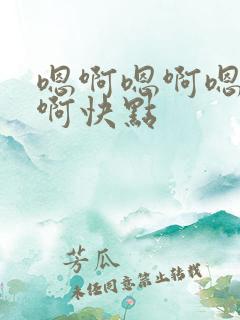 嗯啊嗯啊嗯
啊快點
芳瓜
未经同意禁止转载